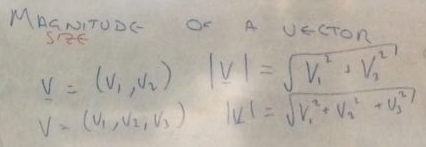 MAGNITUDE OF A VECTOR
SIZE
V = (V₁, V₂) |V| = √V₁² + V₂²
V = (V₁, V₂, V₃) |V| = √V₁² + V₂² + V₃²